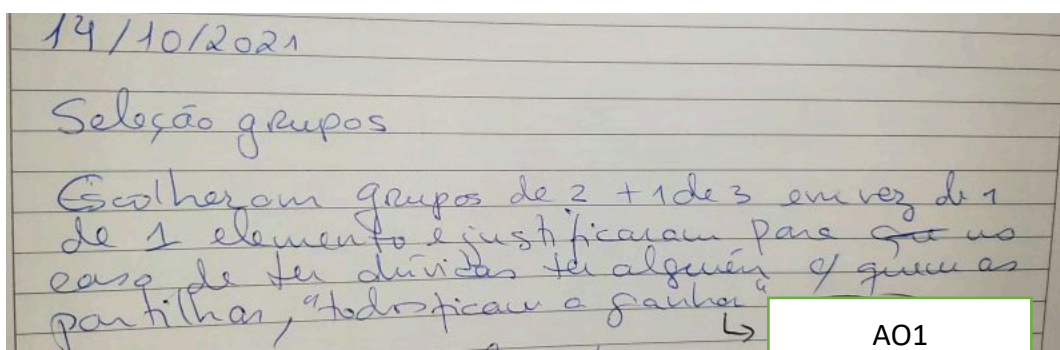 14/10/2021
Seleção grupos
Escolheram grupos de 2 + 1 de 3 em vez de 1
de 1 elemento e justificaram para no
caso de ter dúvidas ter alguém c/ quem as
partilhar, "todos ficam a ganhar"
↳ AO1